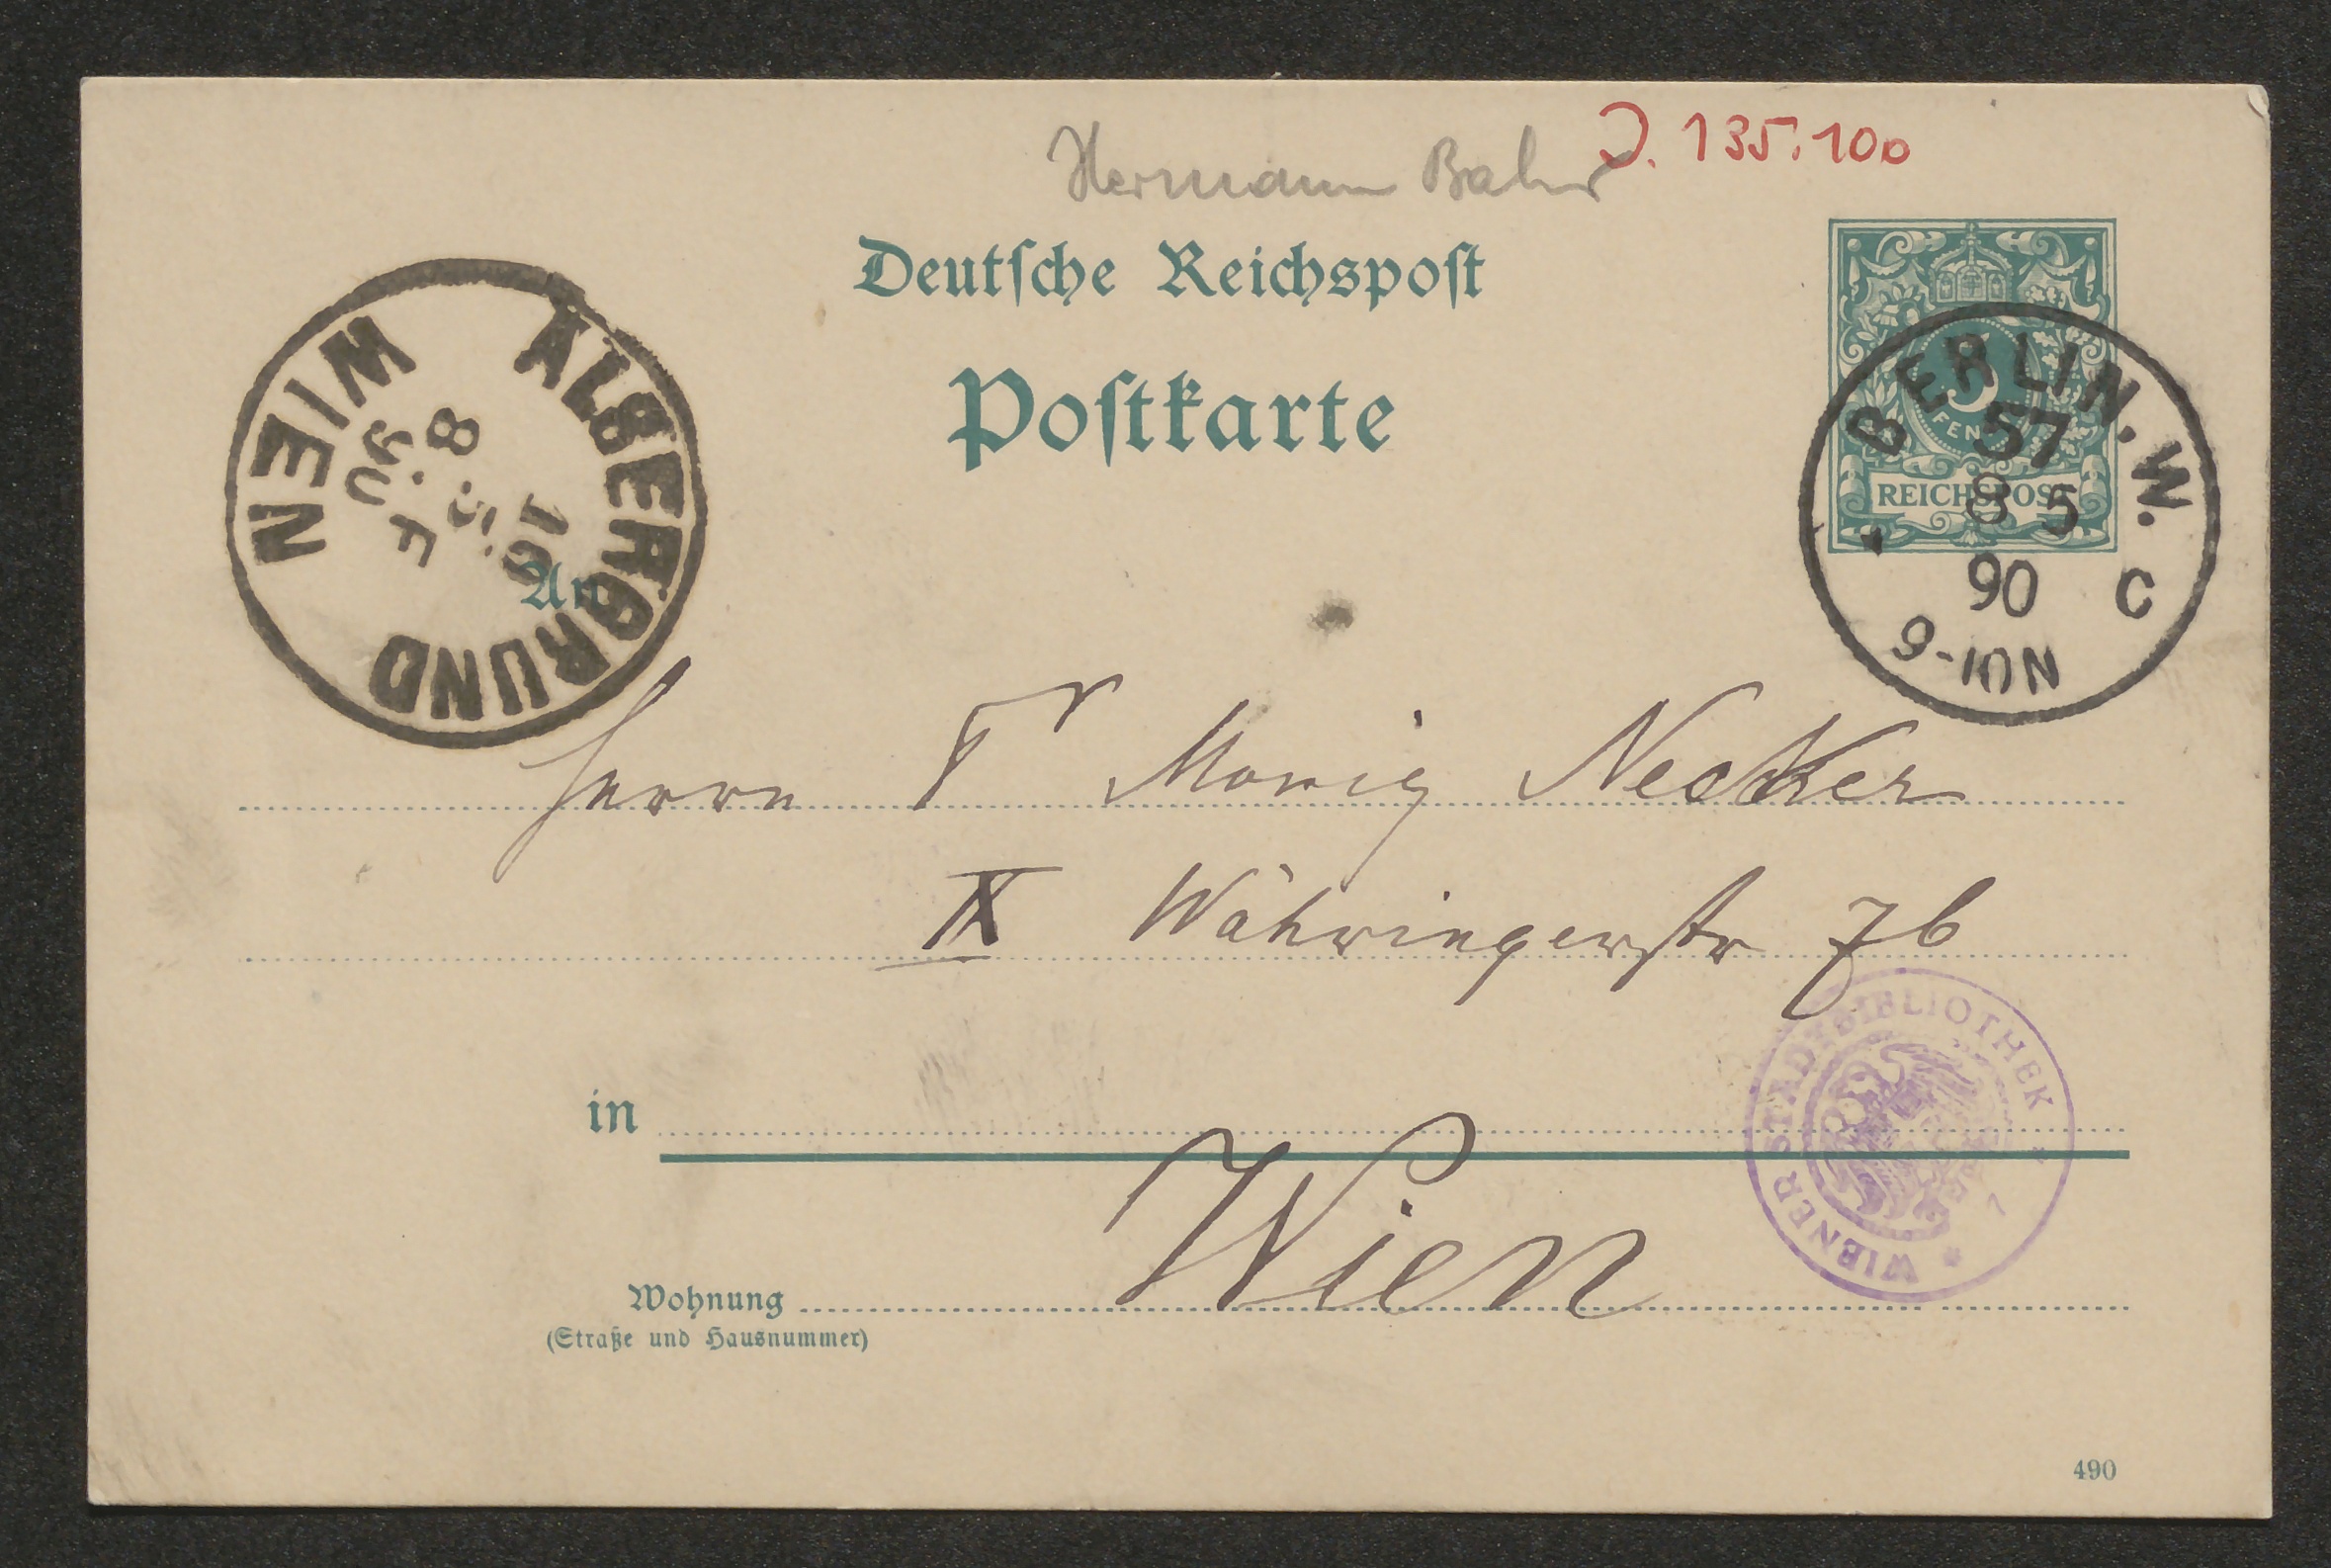 Hermann Bahr J. 135.100
Deutsche Reichspost
Postkarte
5
PFENNIG
REICHSPOST
BERLIN. W.
57
8 5
90 C
9-10N
ALSERGRUND
WIEN
An
Herrn Dr Moriz Necker
IX Währingerstr 76
in
Wien
Wohnung
(Straße und Hausnummer)
WIENER STADTBIBLIOTHEK
490